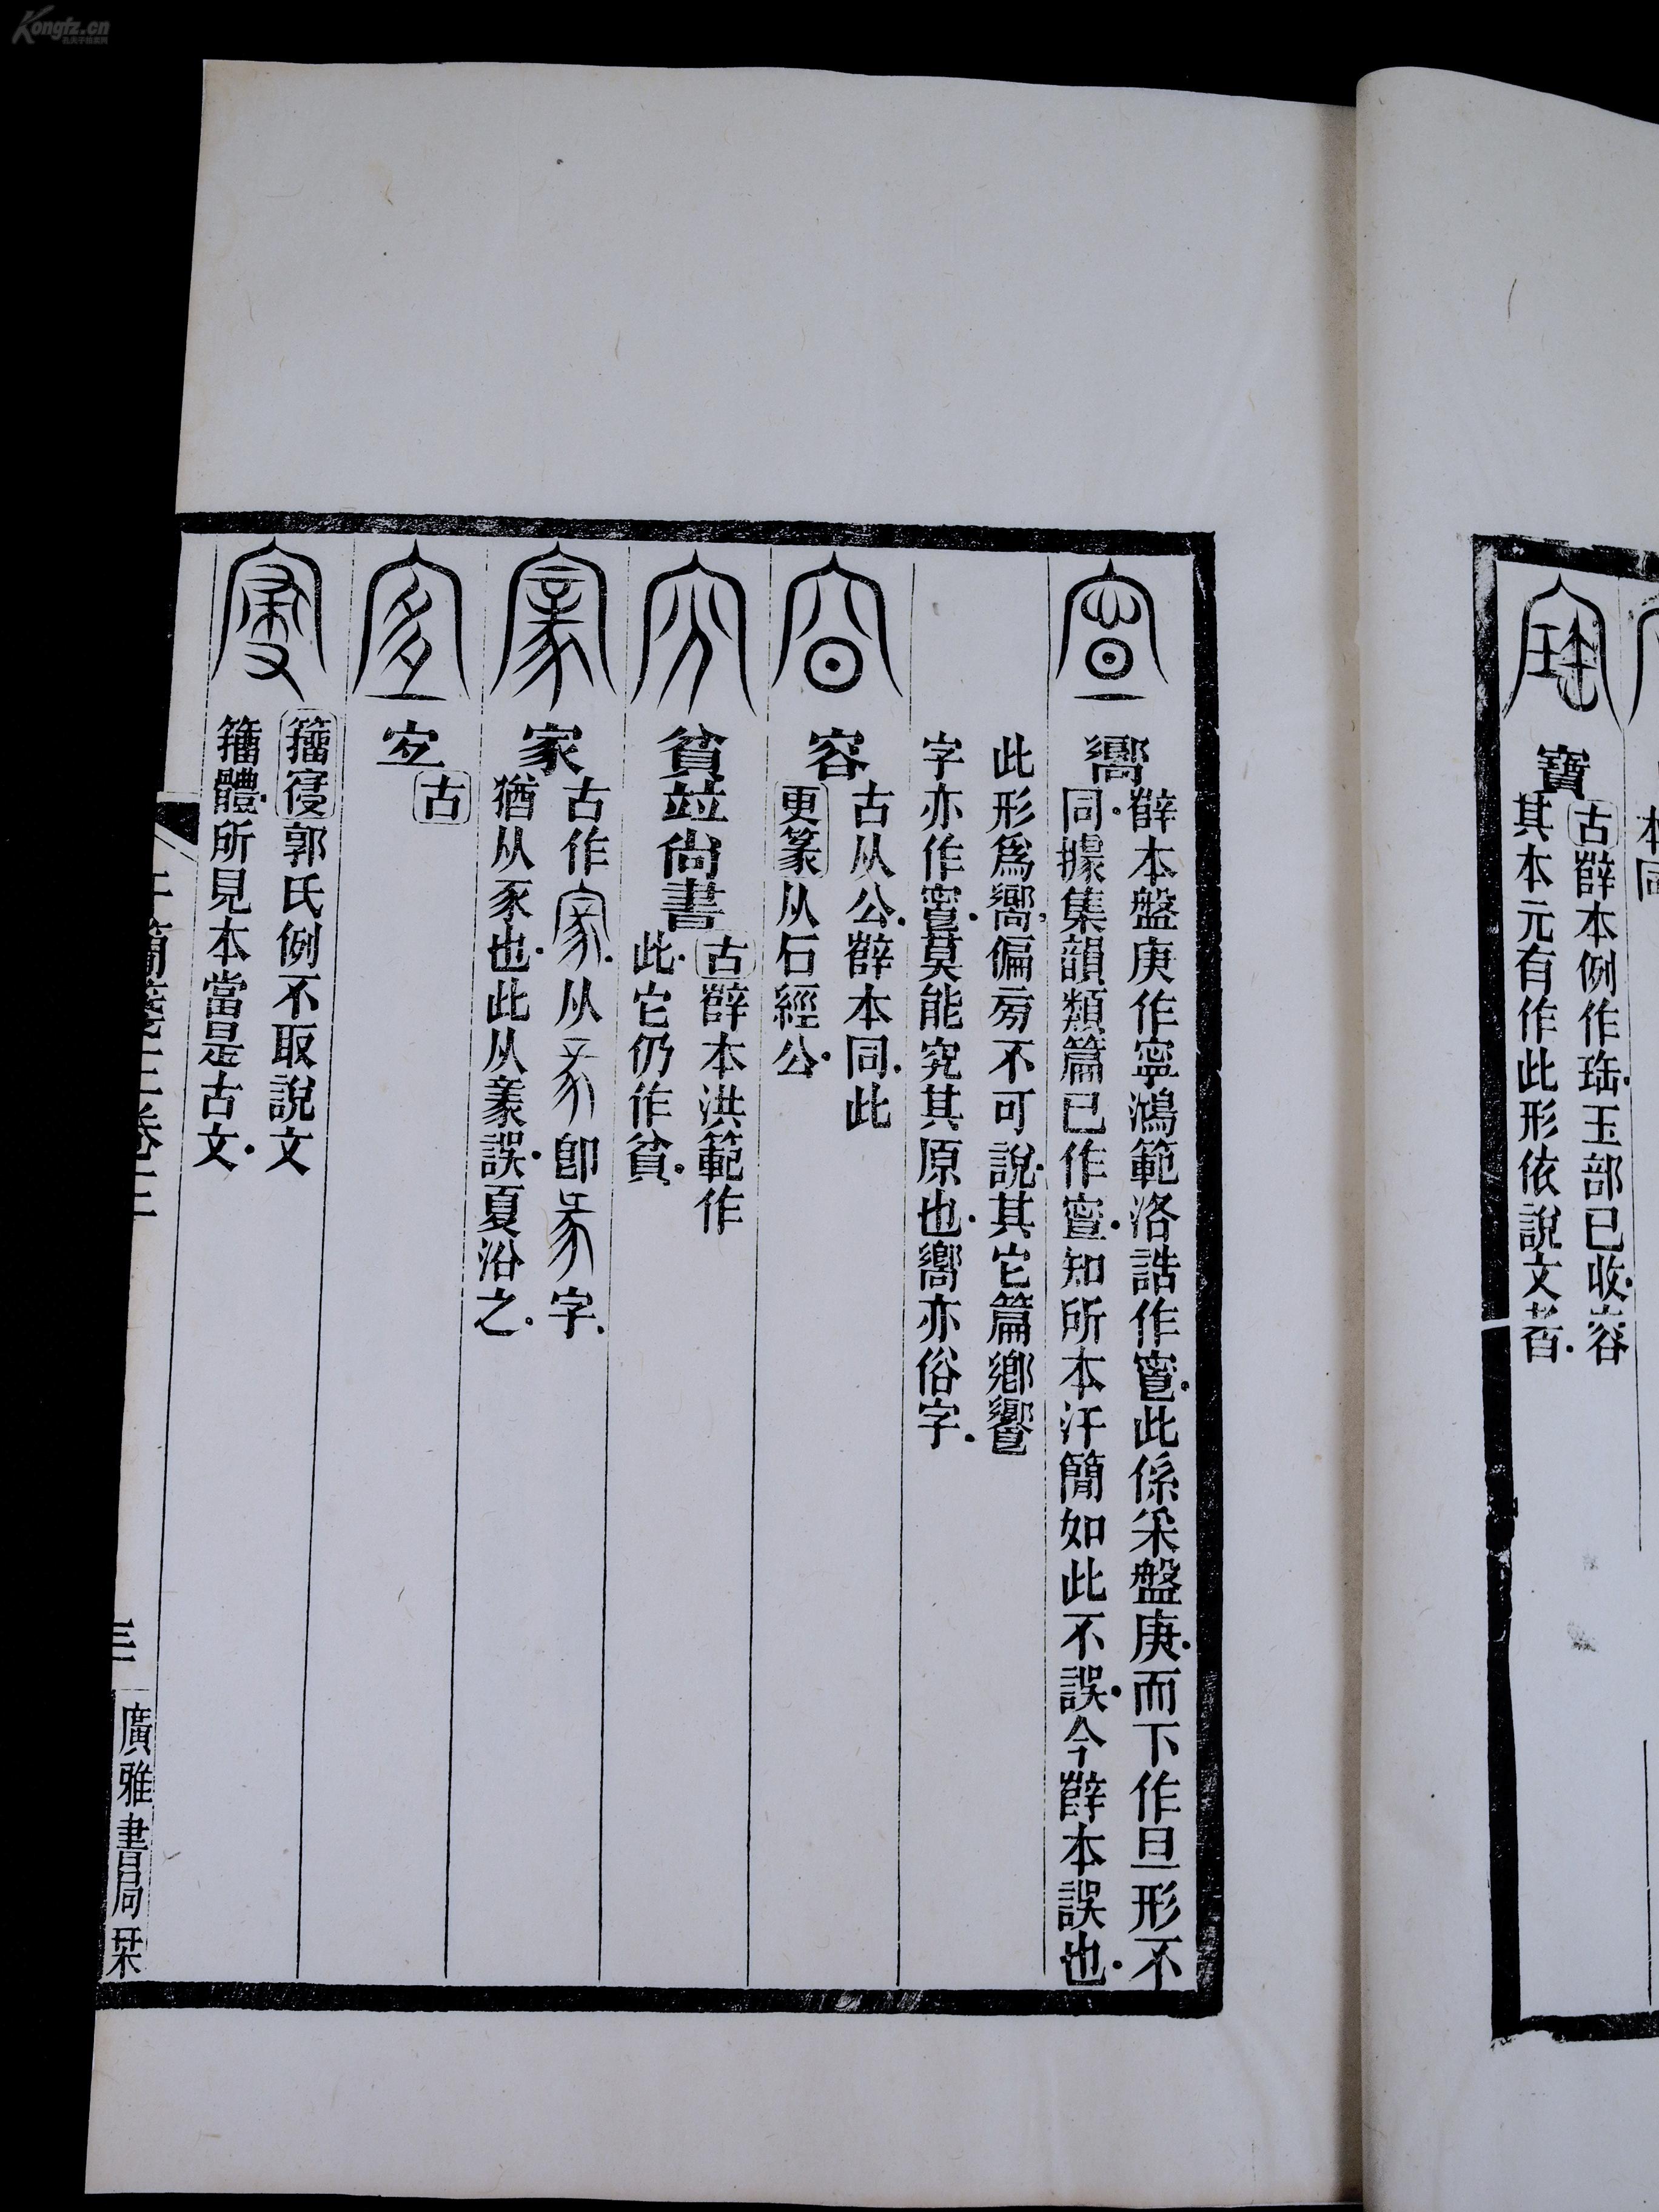 本同
寶
古薛本例作珤玉部已收容
其本元有作此形依說文者
嚮
薛本盤庚作寧鴻範洛誥作㝬此係采盤庚而下作旦形不
同據集韻類篇已作㝬知所本汗簡如此不誤今薛本誤也
此形爲嚮偏旁不可說其它篇鄉響
字亦作㝬莫能究其原也嚮亦俗字
容
古从公薛本同此
更篆从石經公
貧竝尚書
古薛本洪範作
此它仍作貧
家
古作 从 卽 字
猶从豕也此从 誤夏沿之
宜
古
籀寑郭氏例不取說文
籀體所見本當是古文
汗簡箋正卷三
三
廣雅書局栞
Kongfz.cn
孔夫子旧书网